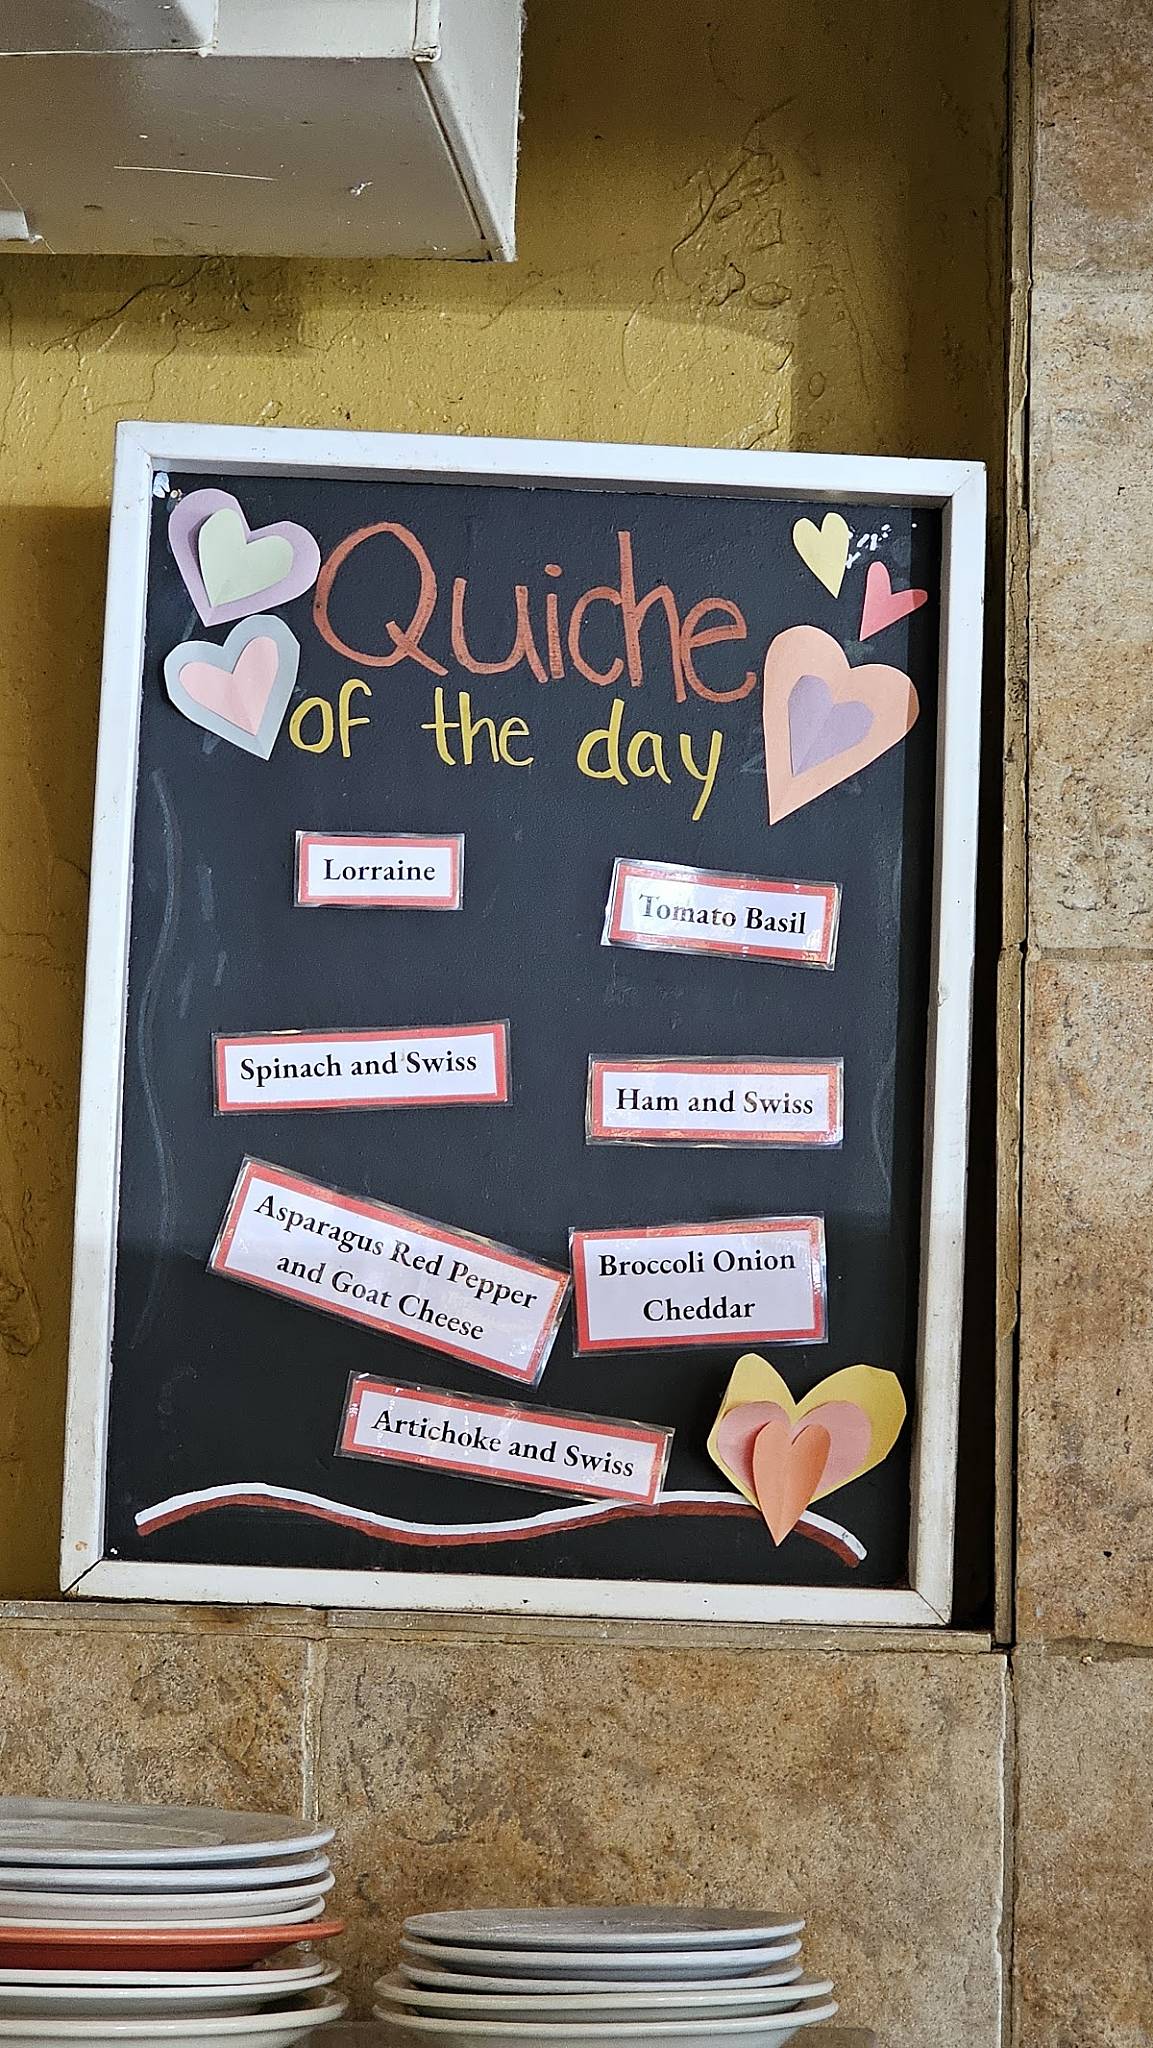 Quiche
of the day
Lorraine
Tomato Basil
Spinach and Swiss
Ham and Swiss
Asparagus Red Pepper
and Goat Cheese
Broccoli Onion
Cheddar
Artichoke and Swiss